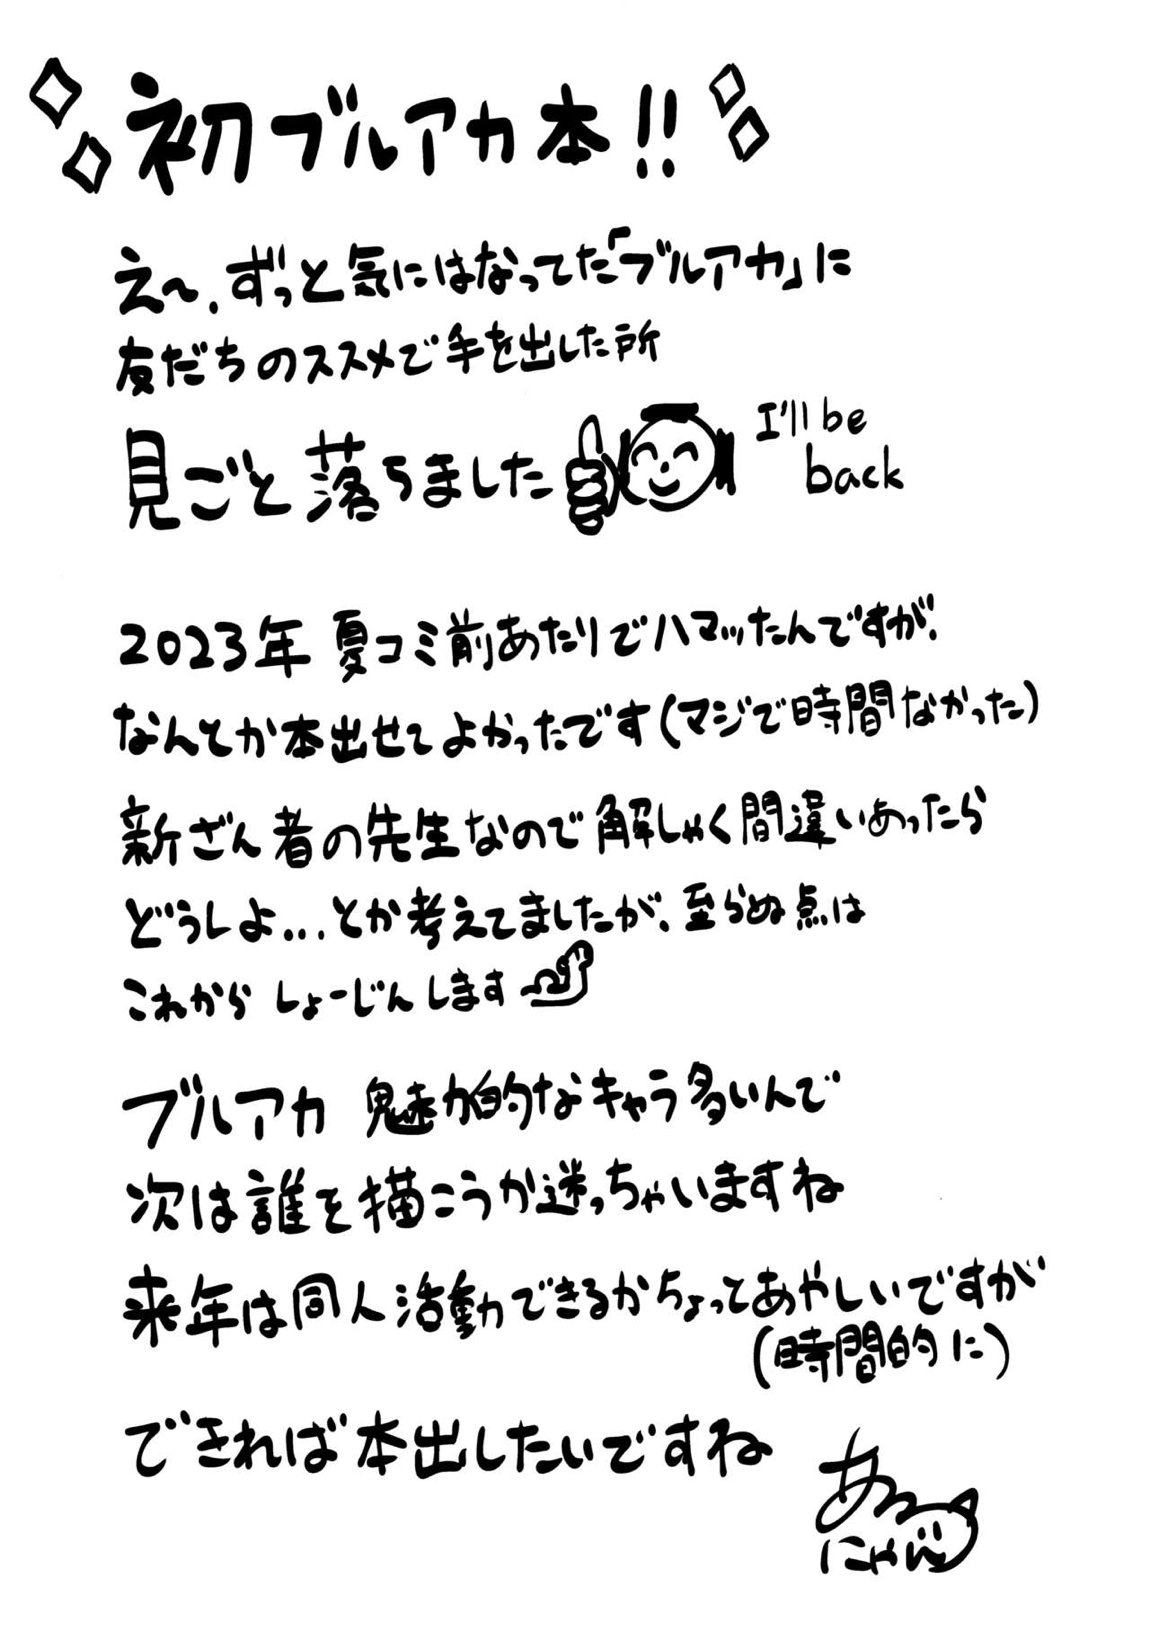 初ブルアカ本!!
え〜、ずっと気にはなってた「ブルアカ」に
友だちのススメで手を出した所
見ごと落ちました
I'll be
back
2023年 夏コミ前あたりでハマッたんですが、
なんとか本出せてよかったです(マジで時間なかった)
新ざん者の先生なので解しゃく間違いあったら
どうしよ...とか考えてましたが、至らぬ点は
これから しょーじんします
ブルアカ 魅力的なキャラ多いんで
次は誰を描こうか迷っちゃいますね
来年は同人活動できるかちょってあやしいですが
(時間的に)
できれば本出したいですね
にゃん